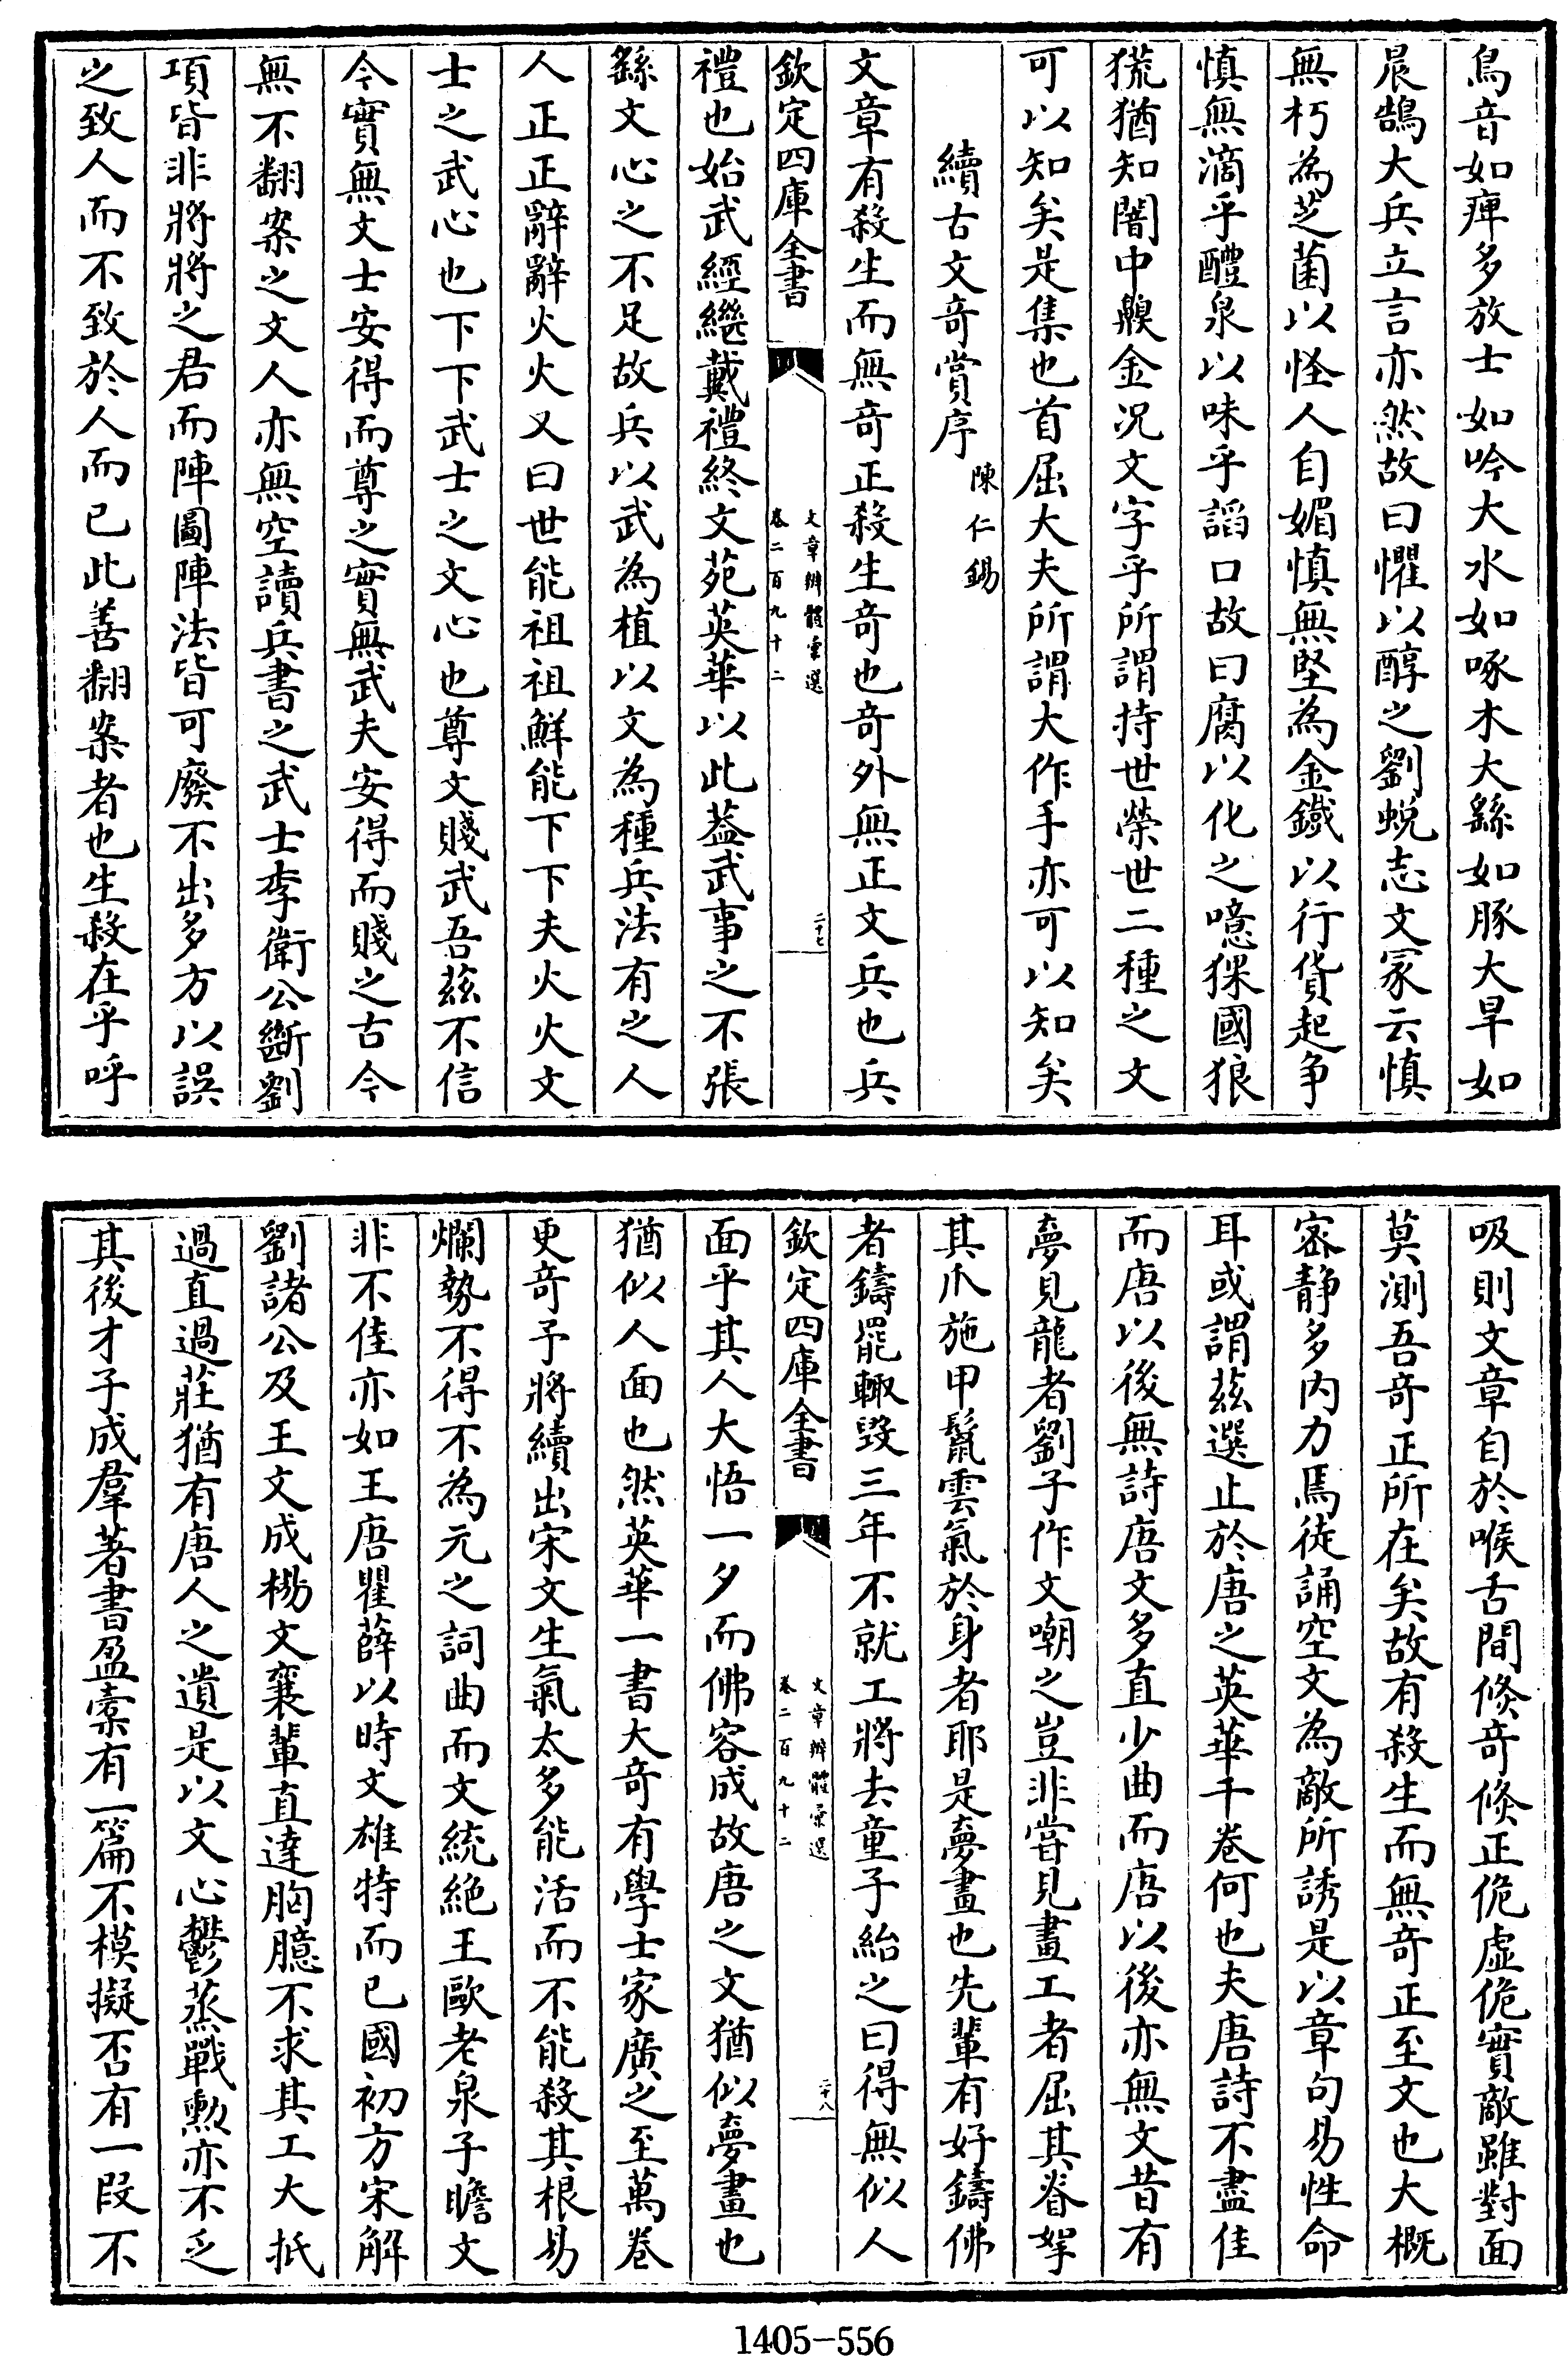 鳥音如痺多放士如吟大水如啄木大繇如豚大旱如
晨鵠大兵立言亦然故曰懼以醇之劉蛻志文冢云慎
無朽為芝菌以怪人自媚慎無堅為金鐵以行貨起爭
慎無滴乎醴泉以味乎謟口故曰腐以化之噫猓國狼
㹰猶知闇中齅金况文字乎所謂持世榮世二種之文
可以知矣是集也首屈大夫所謂大作手亦可以知矣
續古文奇賞序 陳仁錫
文章有殺生而無奇正殺生奇也奇外無正文兵也兵
欽定四庫全書 文章辨體彙選 卷二百九十二 二十七
禮也始武經繼戴禮終文苑英華以此葢武事之不張
繇文心之不足故兵以武為植以文為種兵法有之人
人正正辭辭火火又曰世能祖祖鮮能下下夫火火文
士之武心也下下武士之文心也尊文賤武吾茲不信
今實無文士安得而尊之實無武夫安得而賤之古今
無不翻案之文人亦無空讀兵書之武士李衛公斷劉
項皆非將將之君而陣圖陣法皆可廢不出多方以誤
之致人而不致於人而已此善翻案者也生殺在乎呼
吸則文章自於喉舌間倐奇倐正佹虛佹實敵雖對面
莫測吾奇正所在矣故有殺生而無奇正至文也大概
密静多内力馬徒誦空文為敵所誘是以章句易性命
耳或謂茲選止於唐之英華千卷何也夫唐詩不盡佳
而唐以後無詩唐文多直少曲而唐以後亦無文昔有
夢見龍者劉子作文嘲之豈非嘗見畫工者屈其脊拏
其爪施甲鬛雲氣於身者耶是夢畫也先輩有好鑄佛
者鑄罷輙毀三年不就工將去童子紿之曰得無似人
欽定四庫全書 文章辨體彙選 卷二百九十二 二十八
面乎其人大悟一夕而佛容成故唐之文猶似夢畫也
猶似人面也然英華一書大奇有學士家廣之至萬卷
更奇予將續出宋文生氣太多能活而不能殺其根易
爛勢不得不為元之詞曲而文統絶王歐老泉子瞻文
非不佳亦如王唐瞿薛以時文雄特而已國初方宋解
劉諸公及王文成楊文襄輩直達胸臆不求其工大扺
過直過莊猶有唐人之遺是以文心鬱蒸戰勲亦不乏
其後才子成羣著書盈橐有一篇不模擬否有一段不
1405-556